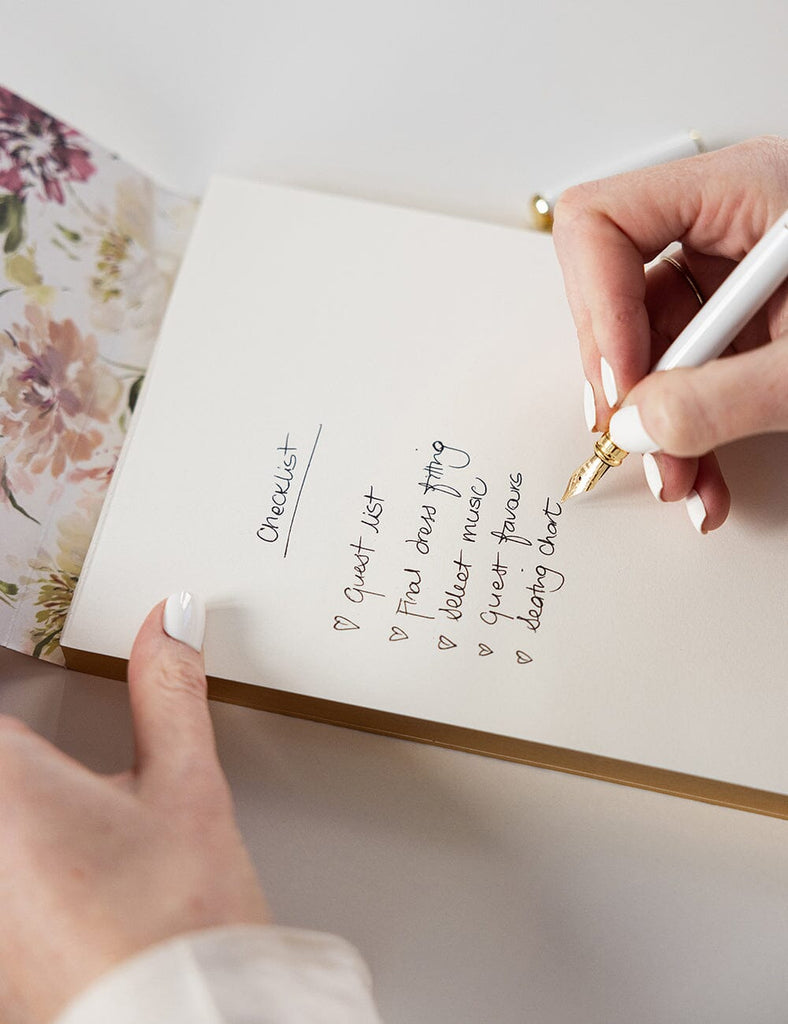 Checklist
♡ Guest list
♡ Final dress fitting
♡ Select music
♡ Guest favours
♡ Seating chart